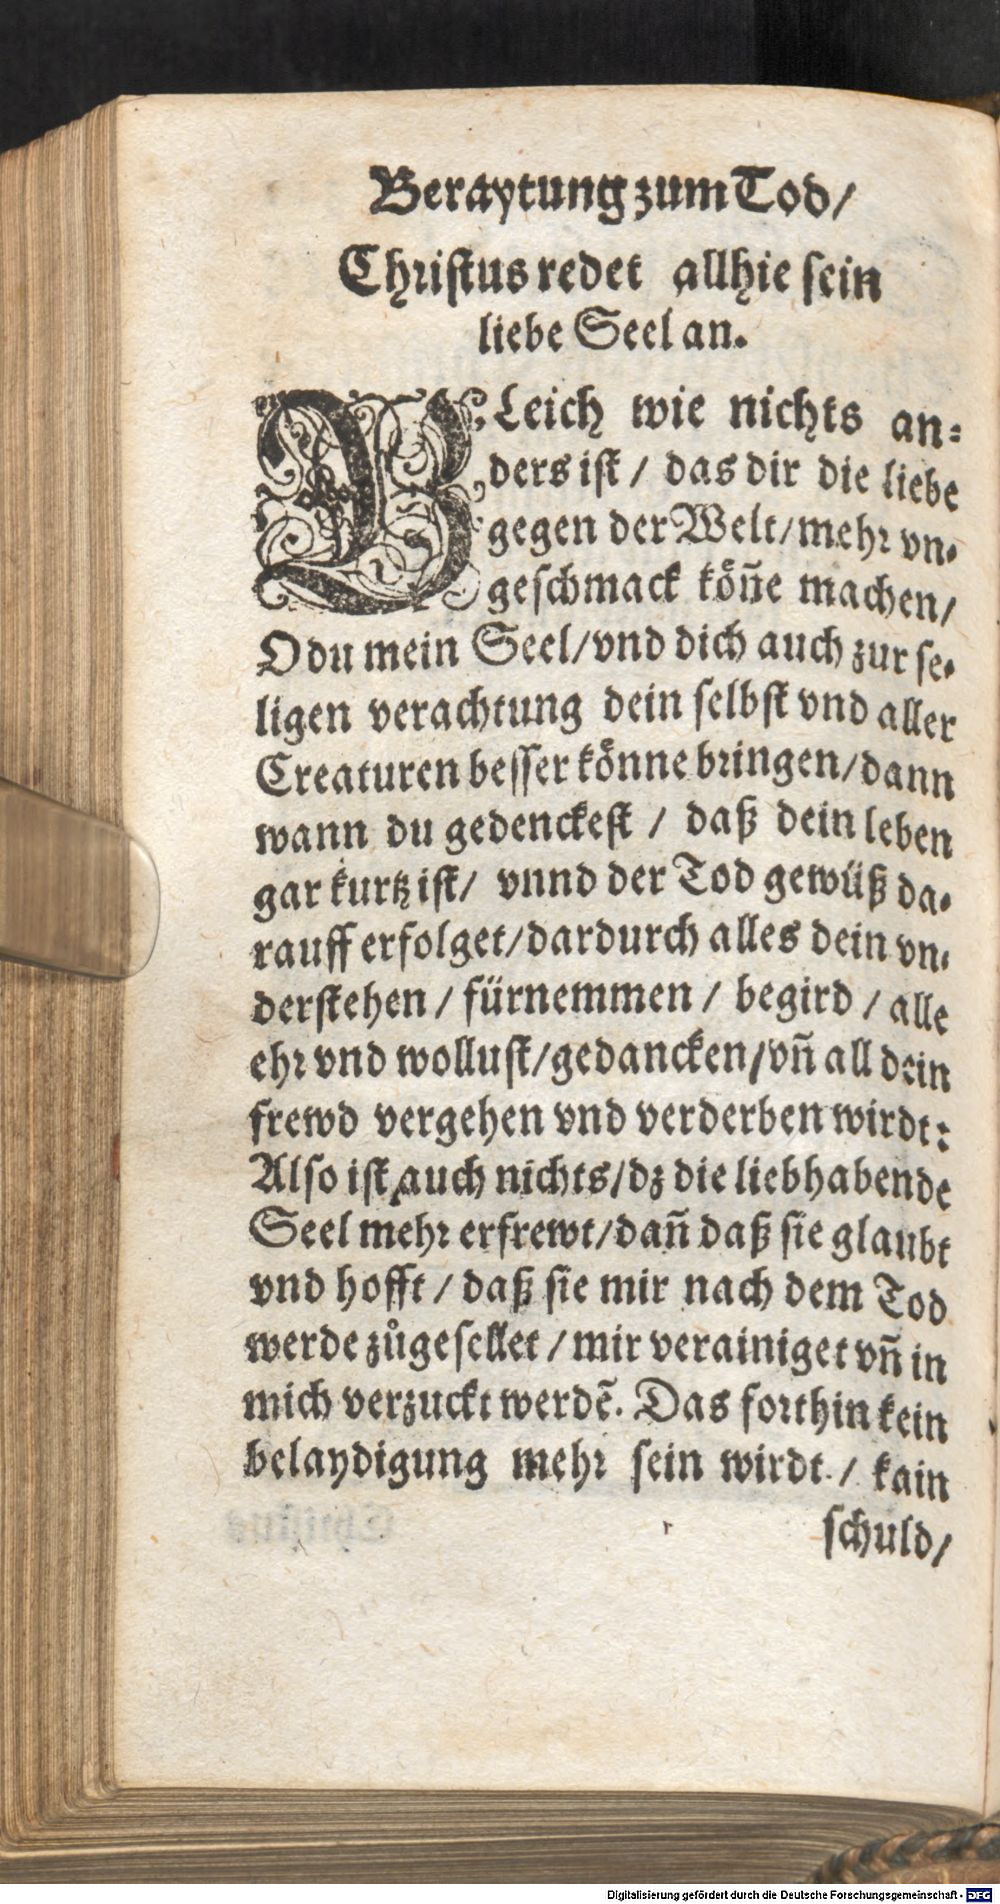 Beraytung zum Tod/
Christus redet allhie sein
liebe Seel an.
GLeich wie nichts an-
ders ist / das dir die liebe
gegen der Welt/mehr vn-
geschmack köñe machen/
O du mein Seel/vnd dich auch zur se-
ligen verachtung dein selbst vnd aller
Creaturen besser könne bringen/dann
wann du gedenckest / daß dein leben
gar kurtz ist/ vnnd der Tod gewüß da-
rauff erfolget/dardurch alles dein vn-
derstehen / fürnemmen / begird / alle
ehr vnd wollust/gedancken/vñ all dein
frewd vergehen vnd verderben wirdt:
Also ist auch nichts/dz die liebhabende
Seel mehr erfrewt/dañ daß sie glaubt
vnd hofft / daß sie mir nach dem Tod
werde zůgesellet / mir verainiget vñ in
mich verzuckt werdẽ. Das forthin kein
belaydigung mehr sein wirdt / kain
schuld/
Digitalisierung gefördert durch die Deutsche Forschungsgemeinschaft - DFG